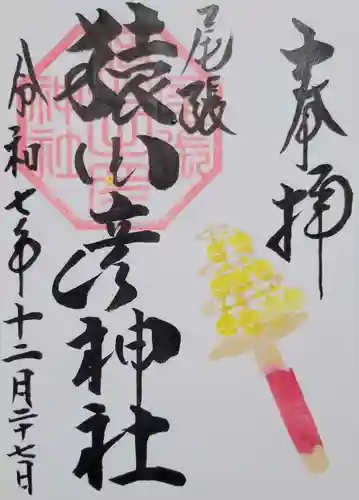 奉拝
尾張
猿田彦神社
令和七年十二月二十七日